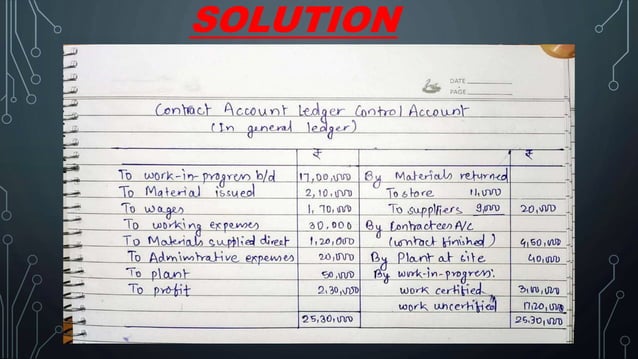 SOLUTION
DATE
PAGE
Contract Account Ledger Control Account
(In general ledger)
₹ ₹
To work-in-progress b/d 17,00,000 By Materials returned
To Material issued 2,10,000 To store 11,000
To wages 1,70,000 To suppliers 9,000 20,000
To working expenses 30,000 By Contractees A/c
To Materials supplied direct 1,20,000 (contract finished) 4,50,000
To Adminstrative expenses 20,000 By Plant at site 40,000
To plant 50,000 By work-in-progress:
To profit 2,30,000 work certified 3,00,000
work uncertified 17,20,000
25,30,000 25,30,000